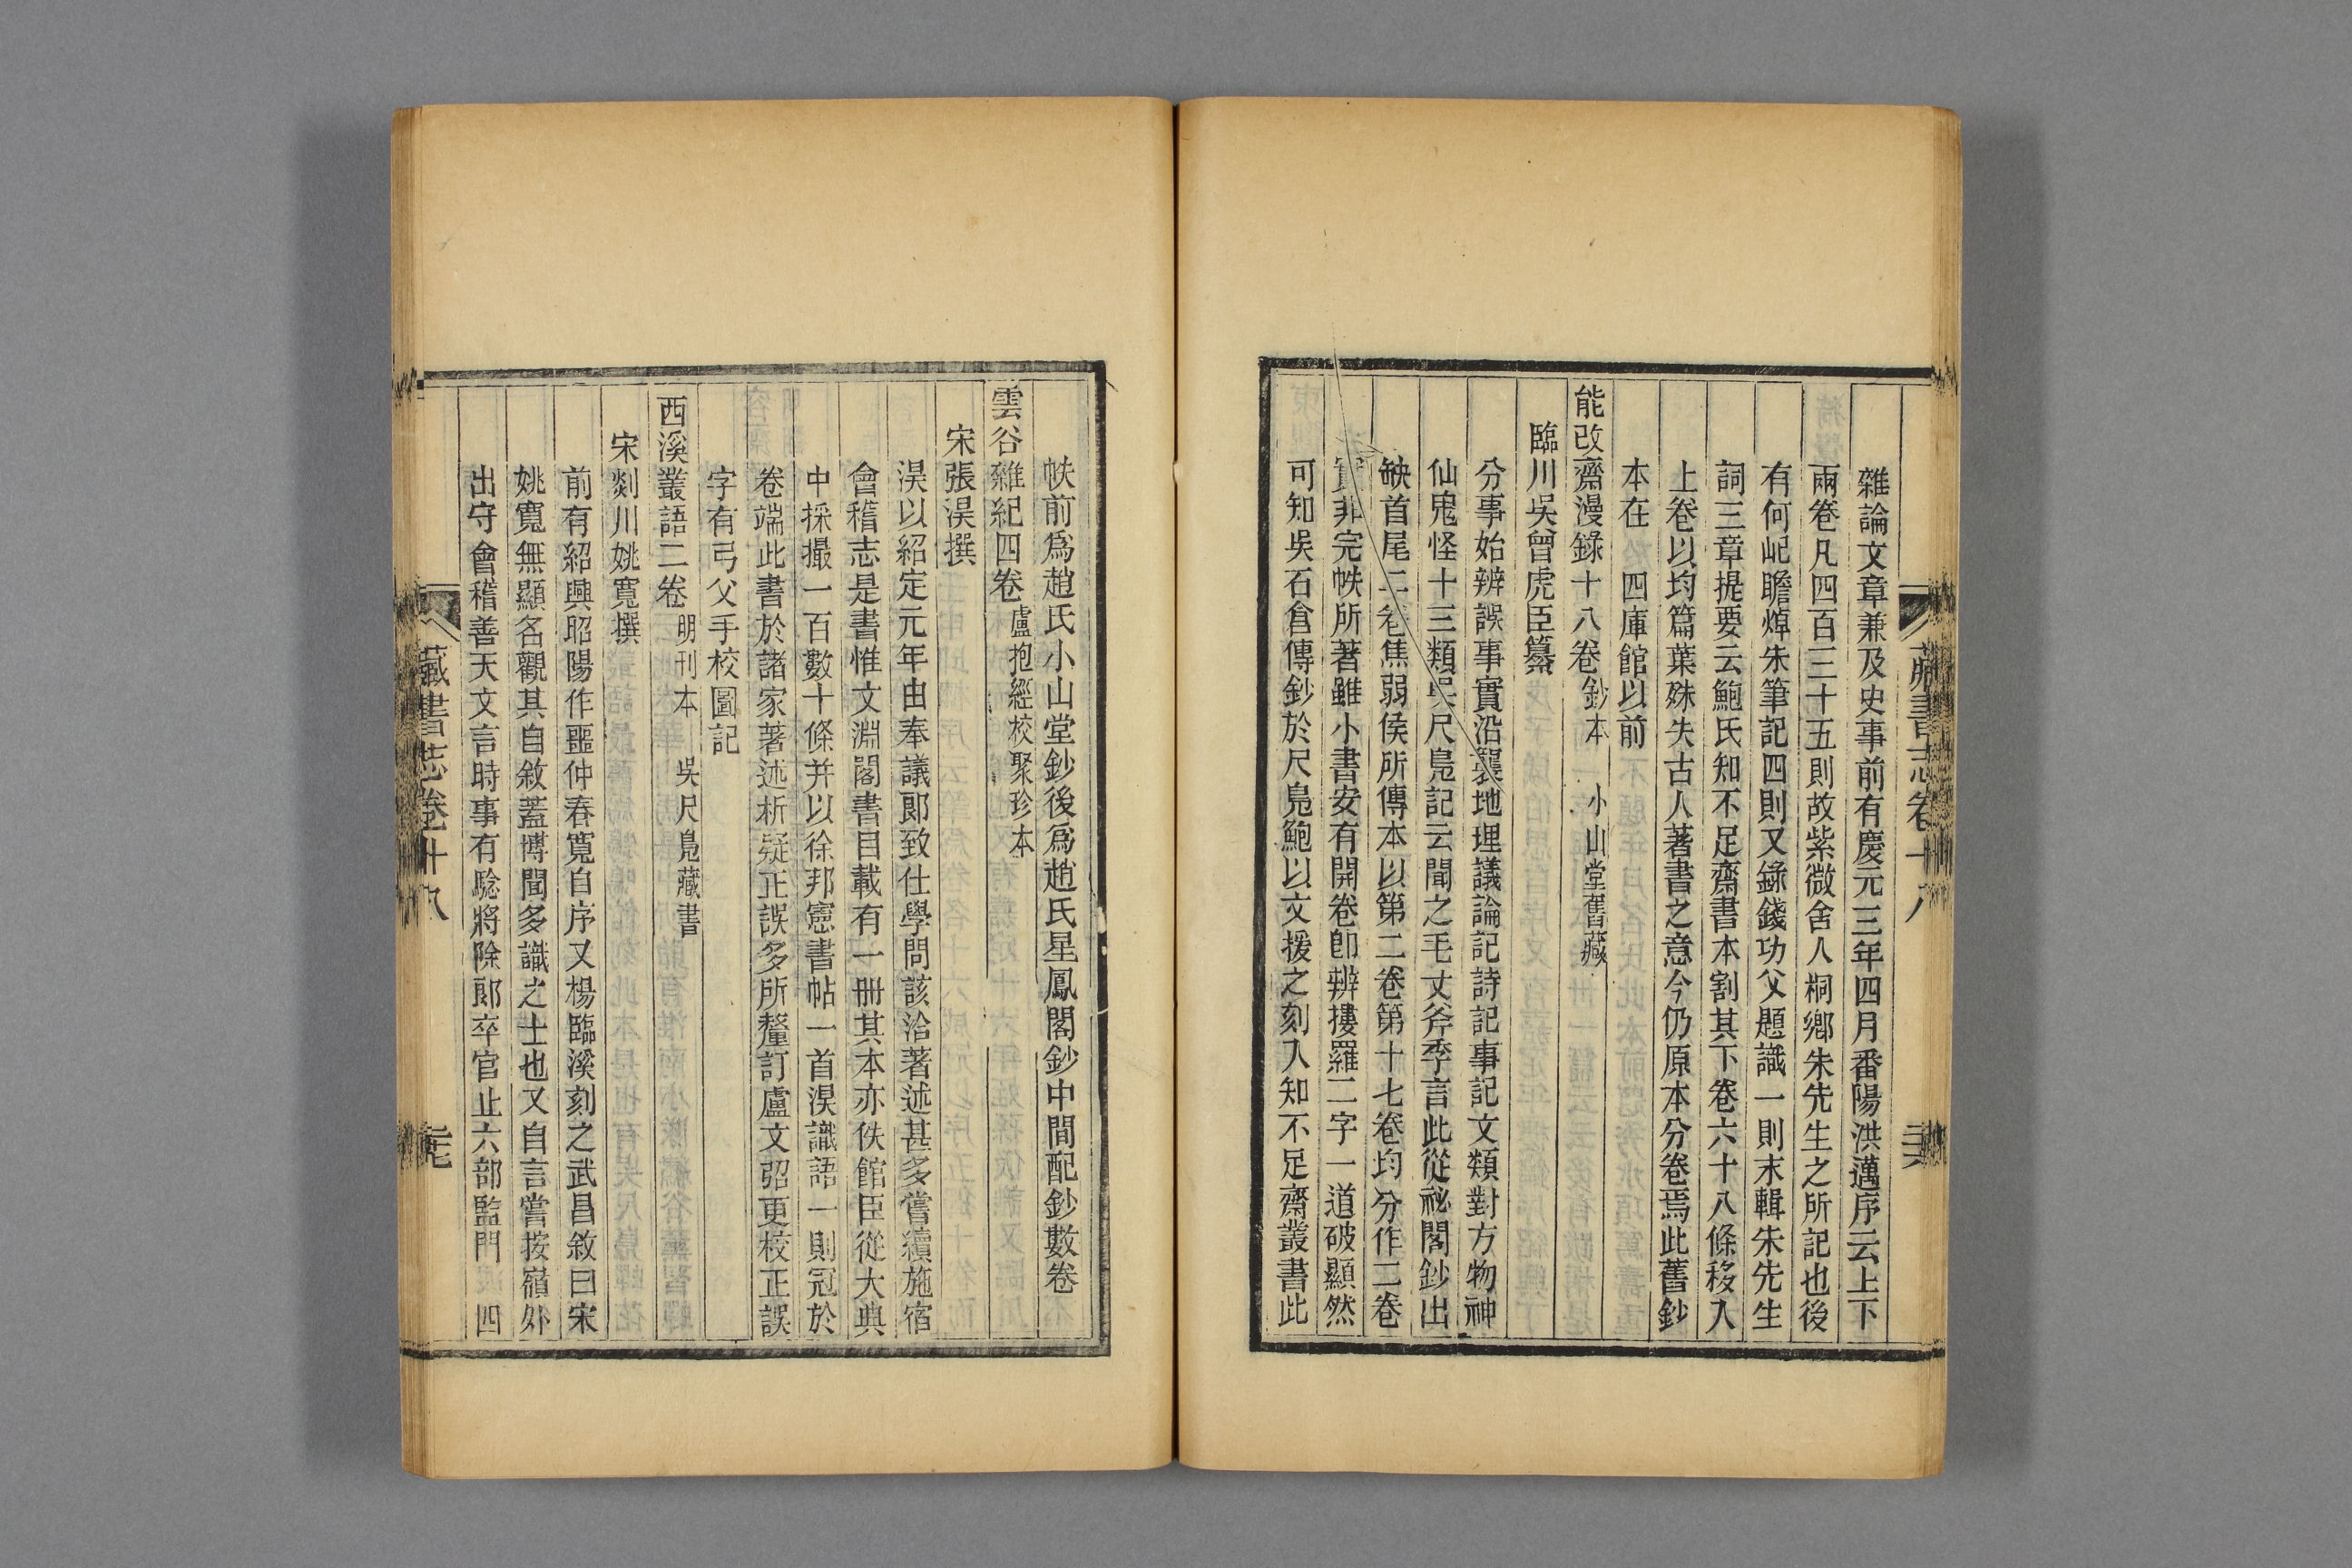 藏書志卷十八
雜論文章兼及史事前有慶元三年四月番陽洪邁序云上下
兩卷凡四百三十五則故紫微舍人桐鄉朱先生之所記也後
有何屺瞻焯朱筆記四則又錄錢功父題識一則末輯朱先生
詞三章提要云鮑氏知不足齋書本割其下卷六十八條移入
上卷以均篇葉殊失古人著書之意今仍原本分卷焉此舊鈔
本在　四庫館以前
能改齋漫錄十八卷鈔本　小山堂舊藏
臨川吳曾虎臣纂
分事始辨誤事實沿襲地理議論記詩記事記文類對方物神
仙鬼怪十三類吳尺鳧記云聞之毛丈斧季言此從祕閣鈔出
缺首尾二卷焦弱侯所傳本以第二卷第十七卷均分作二卷
實非完帙所著雖小書安有開卷卽辨摟羅二字一道破顯然
可知吳石倉傳鈔於尺鳧鮑以文援之刻入知不足齋叢書此
帙前爲趙氏小山堂鈔後爲趙氏星鳳閣鈔中間配鈔數卷
雲谷雜紀四卷盧抱經校聚珍本
宋張淏撰
淏以紹定元年由奉議郞致仕學問該洽著述甚多嘗續施宿
會稽志是書惟文淵閣書目載有一冊其本亦佚館臣從大典
中採撮一百數十條并以徐邦憲書帖一首淏識語一則冠於
卷端此書於諸家著述析疑正誤多所釐訂盧文弨更校正誤
字有弓父手校圖記
西溪叢語二卷　明刊本　吳尺鳧藏書
宋剡川姚寬撰
前有紹興昭陽作噩仲春寬自序又楊臨溪刻之武昌敘曰宋
姚寬無顯名觀其自敘蓋博聞多識之士也又自言嘗按嶺外
出守會稽善天文言時事有驗將除郞卒官止六部監門　四
藏書志卷十八